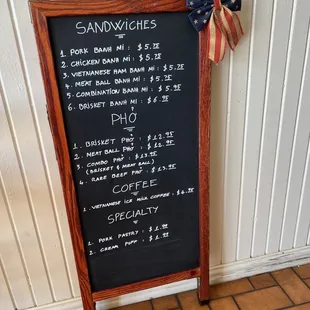 SANDWICHES
1. PORK BANH MÍ : $ 5.75
2. CHICKEN BANH MÍ : $ 5.75
3. VIETNAMESE HAM BANH MÍ : $ 5.75
4. MEAT BALL BANH MÍ : $ 5.75
5. COMBINATION BANH MÍ : $ 5.75
6. BRISKET BANH MÍ : $ 6.95
PHỞ
1. BRISKET PHỞ : $ 12.95
2. MEAT BALL PHỞ : $ 12.95
3. COMBO PHỞ : $ 13.95
(BRISKET & MEAT BALL)
4. RARE BEEF PHỞ : $ 13.95
COFFEE
1. VIETNAMESE ICE MILK COFFEE : $ 4.75
SPECIALTY
1. PORK PASTRY : $ 1.95
2. CREAM PUFF : $ 1.95